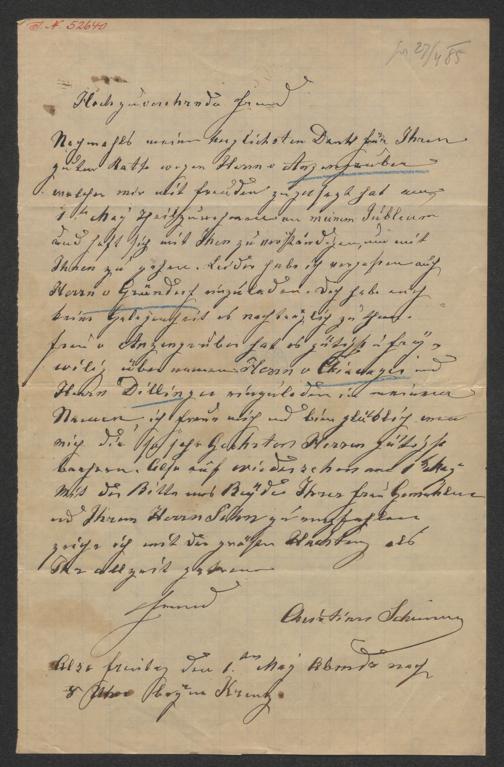 I. N 52640
27/4 85
Hochzuverehrender Freund
Nochmahls meinen herzlichsten Dank für Ihren
guten Rath wegen Herrn v Anzengruber
welcher mir mit Freuden zugesagt hat am
1ten May theilzunehmen an meinem Jubileum
und hoft sich mit Ihnen zu verständigen, um mit
Ihnen zu gehen. Leider habe ich vergessen auch
Herrn v Gründorf einzuladen. Doch habe auch
keine Gelegenheit es nachträglich zu thun.
Frau v Anzengruber hat es gütigst freÿ-
willig übernommen Herrn v Chiavacci und
Herrn Dillinger einzuladen in meinem
Namen, ich freue mich und bin glücklich wenn
mich die so sehr Geehrten Herren gütigst
beehren. Also auf wiedersehen am 1ten May.
Mit der Bitte uns Beÿde Ihrer Frau Gemahlin
und Ihrem Herrn Sohn zu empfehlen
zeichne ich mit der größten Achtung als
Ihr allzeit getreuer
Freund
Christian
Also Freitag den 1. ten May Abends nach
8 Uhr beÿm Kreuz.